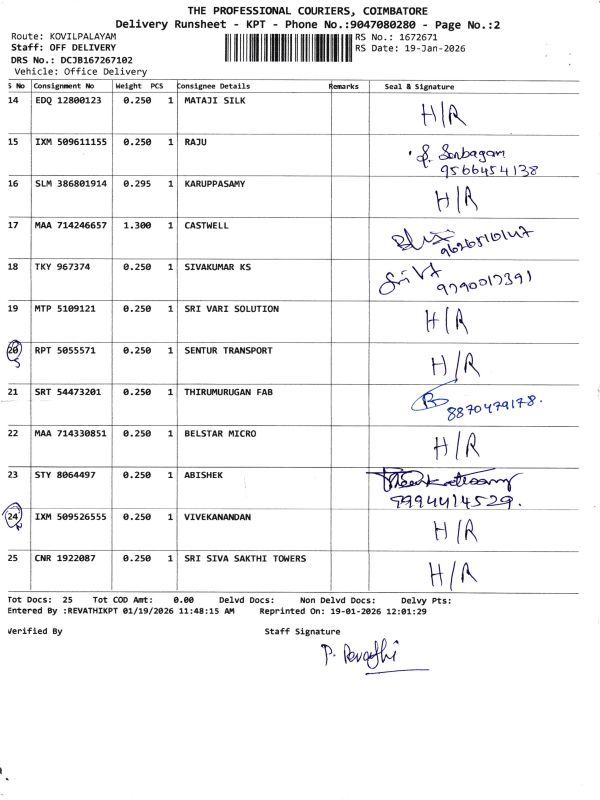 THE PROFESSIONAL COURIERS, COIMBATORE
Delivery Runsheet - KPT - Phone No.:9047080280 - Page No.:2
Route: KOVILPALAYAM RS No.: 1672671
Staff: OFF DELIVERY RS Date: 19-Jan-2026
DRS No.: DCJB167267102
Vehicle: Office Delivery
S No Consignment No Weight PCS Consignee Details Remarks Seal & Signature
14 EDQ 12800123 0.250 1 MATAJI SILK H/R
15 IXM 509611155 0.250 1 RAJU
9566454138
16 SLM 386801914 0.295 1 KARUPPASAMY H/R
17 MAA 714246657 1.300 1 CASTWELL
18 TKY 967374 0.250 1 SIVAKUMAR KS
9790017391
19 MTP 5109121 0.250 1 SRI VARI SOLUTION H/R
20 RPT 5055571 0.250 1 SENTUR TRANSPORT H/R
21 SRT 54473201 0.250 1 THIRUMURUGAN FAB
8870479178.
22 MAA 714330851 0.250 1 BELSTAR MICRO H/R
23 STY 8064497 0.250 1 ABISHEK
9994414529.
24 IXM 509526555 0.250 1 VIVEKANANDAN H/R
25 CNR 1922087 0.250 1 SRI SIVA SAKTHI TOWERS H/R
Tot Docs: 25 Tot COD Amt: 0.00 Delvd Docs: Non Delvd Docs: Delvy Pts:
Entered By :REVATHIKPT 01/19/2026 11:48:15 AM Reprinted On: 19-01-2026 12:01:29
Verified By Staff Signature
P. Revathi